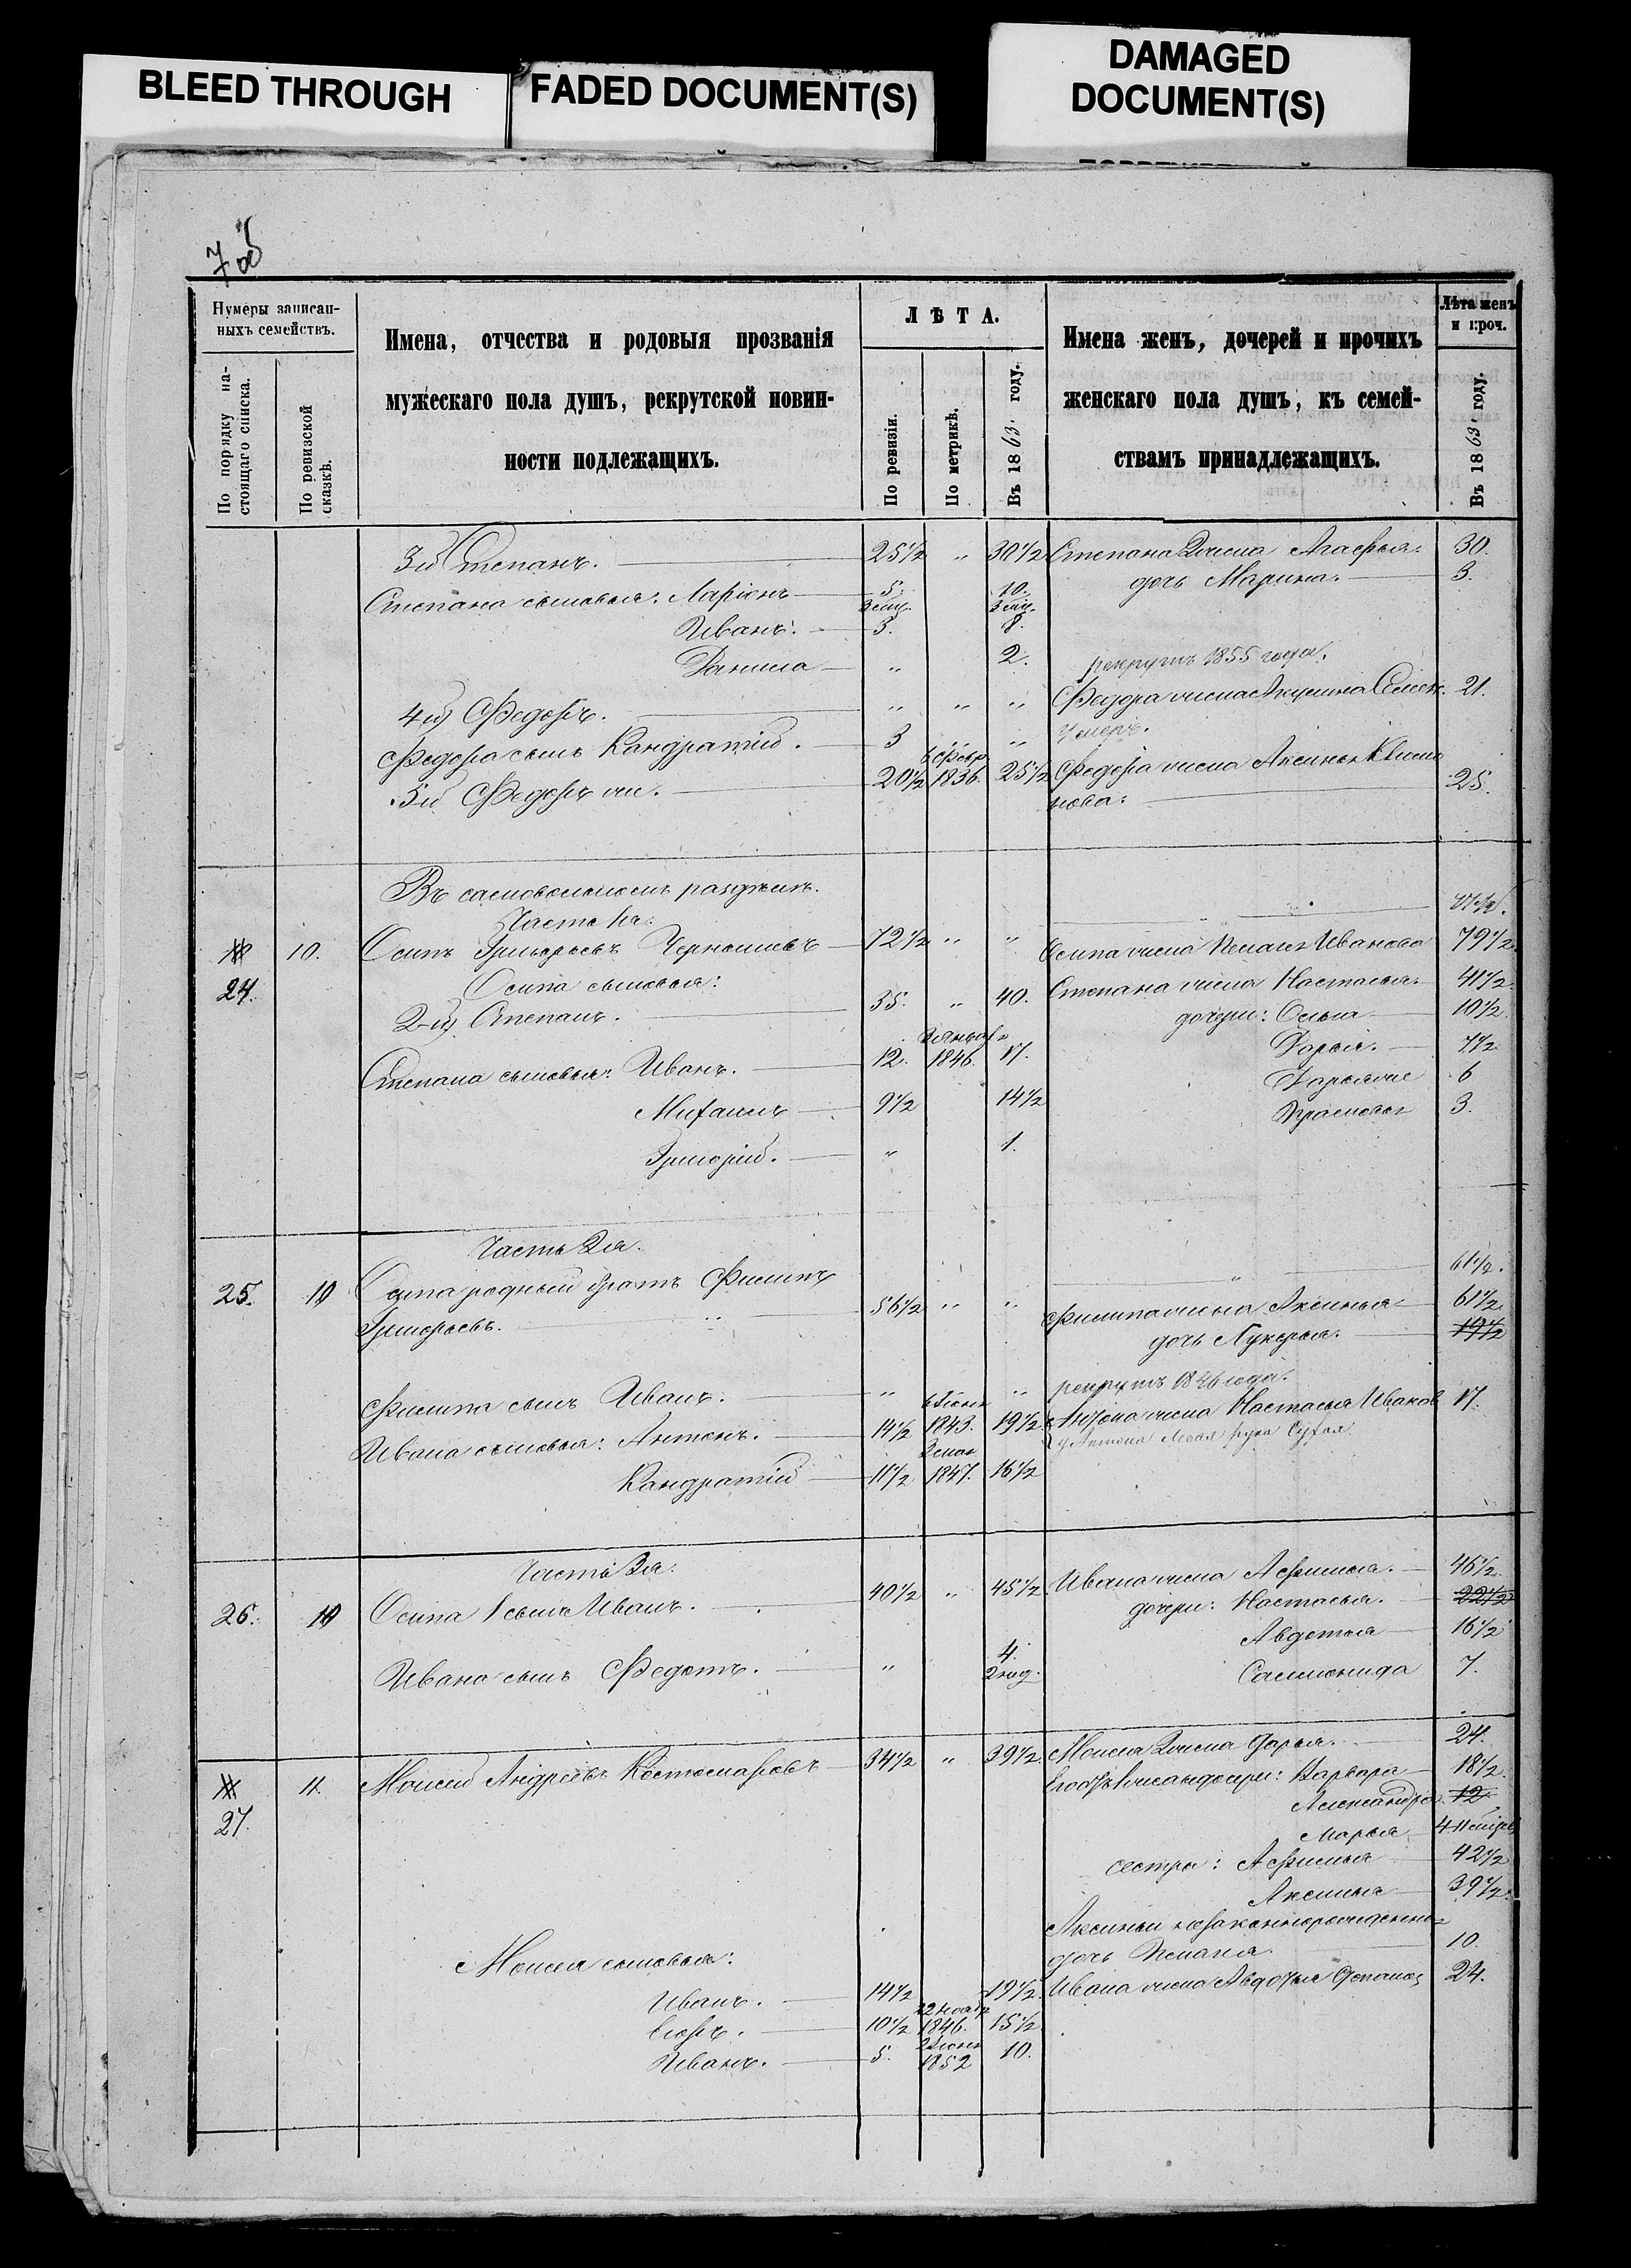 BLEED THROUGH
FADED DOCUMENT(S)
DAMAGED
DOCUMENT(S)
7 об
Нумеры записан-
ныхъ семействъ.
По порядку на-
стоящаго списка.
По ревизской
сказкѣ.
Имена, отчества и родовыя прозванія
мужескаго пола душъ, рекрутской повин-
ности подлежащихъ.
ЛѢТА.
По ревизіи.
По метрикѣ.
Въ 1863 году.
Имена женъ, дочерей и прочихъ
женскаго пола душъ, къ семей-
ствамъ принадлежащихъ.
Лѣта женъ
и проч.
Въ 1863 году.
3й Степанъ. 25½ „ 30½ Степана 2 жена Агафья. 30.
дочь Марина. 3.
Степана сыновья: Ларіонъ 5. 10.
Иванъ. 3. 8.
Данила „ 2.
рекрутъ 1855 года.
4й Федоръ. „ „ „ Федора жена Акулина Семен. 21.
Федора сынъ Кандратій. 3 „ „ умеръ.
5й Федоръ же. 20½ 6 Февр 1836. 25½ Федора жена Аксинья Климо
нова. 25.
Въ самовольномъ раздѣлѣ.
Часть 1я.
24. 10. Осипъ Григорьевъ 72½ „ „ Осипа жена Пелагея Иванова 79½
Осипа сыновья:
2-й Степанъ. 35. „ 40. Степана жена Настасья. 41½
дочери: Ольга 10½
Степана сыновья: Иванъ. 12. 1846. 17. Дарья. 7½
Дарья же 6
Михаилъ 9½ 14½ Прасковья 3.
Григорій. „ 1.
Часть 2я.
61½.
25. 10 Осипа родный братъ Филипъ
Григорьевъ. 56½ „ „ Филипа жена Аксинья 61½
дочь Лукерья. 19½
Филипа сынъ Иванъ. „ „ рекрутъ 1846 года.
Ивана сыновья: Антонъ. 14½ 1843. 19½ Антона жена Настасья Иванов 17.
у Антона левая рука сухая.
Кандратій 11½ 1847. 16½
Часть 3я.
26. 10 Осипа 1 сынъ Иванъ. 40½ „ 45½ Ивана жена Афимья. 46½
дочери: Настасья. 22½
Авдотья 16½
Ивана сынъ Федотъ. „ 4. Саламонида 7.
27. 11. Моисей Андреевъ Костомаровъ 34½ „ 39½ Моисея 2 жена Дарья. 24.
дочери: Варвара 18½
Александра. 12
Марья
сестры: Афимья 42½
Аксинья 39½
Аксиньи незаконнорожденная
дочь Пелагея. 10.
Моисея сыновья:
Иванъ. 14½ 19½ Ивана жена Авдотья Степанов 24.
Егоръ. 10½ 22 Нояб 1846. 15½
Иванъ. 5. 1852 10.